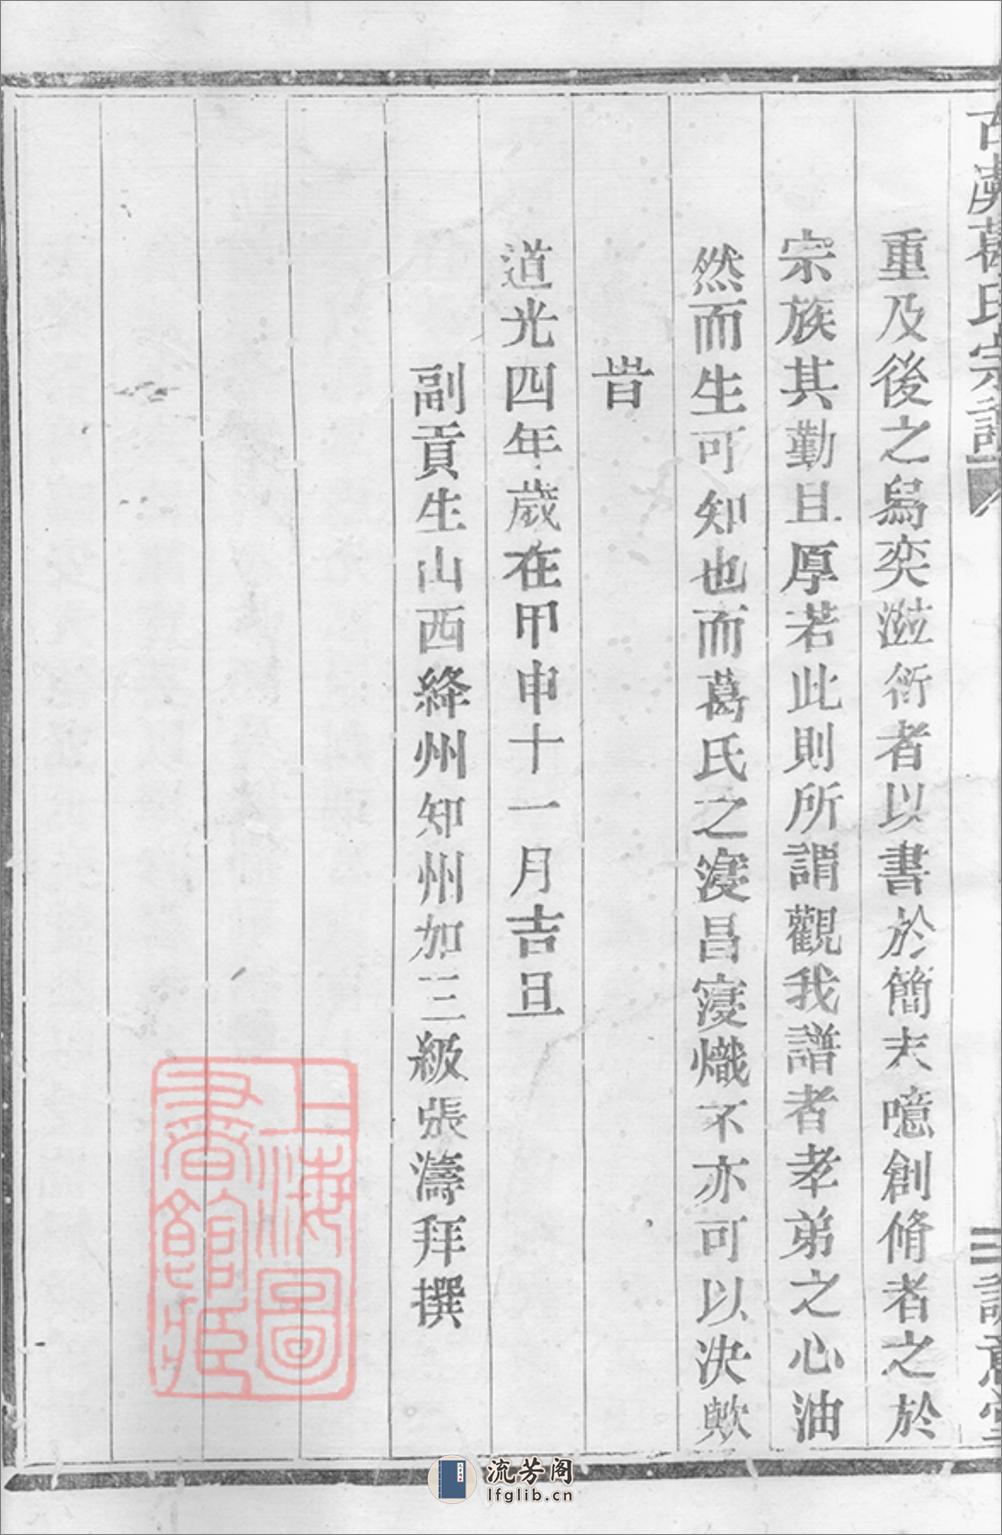 古虞葛氏宗譜
重及後之爲奕滋衍者以書於簡末噫創脩者之於
宗族其勤且厚若此則所謂觀我譜者孝弟之心油
然而生可知也而葛氏之寖昌寖熾不亦可以决歟
旹
道光四年歲在甲申十一月吉旦
副貢生山西絳州知州加三級張濤拜撰
上海圖書館藏
流芳阁
lfglib.cn